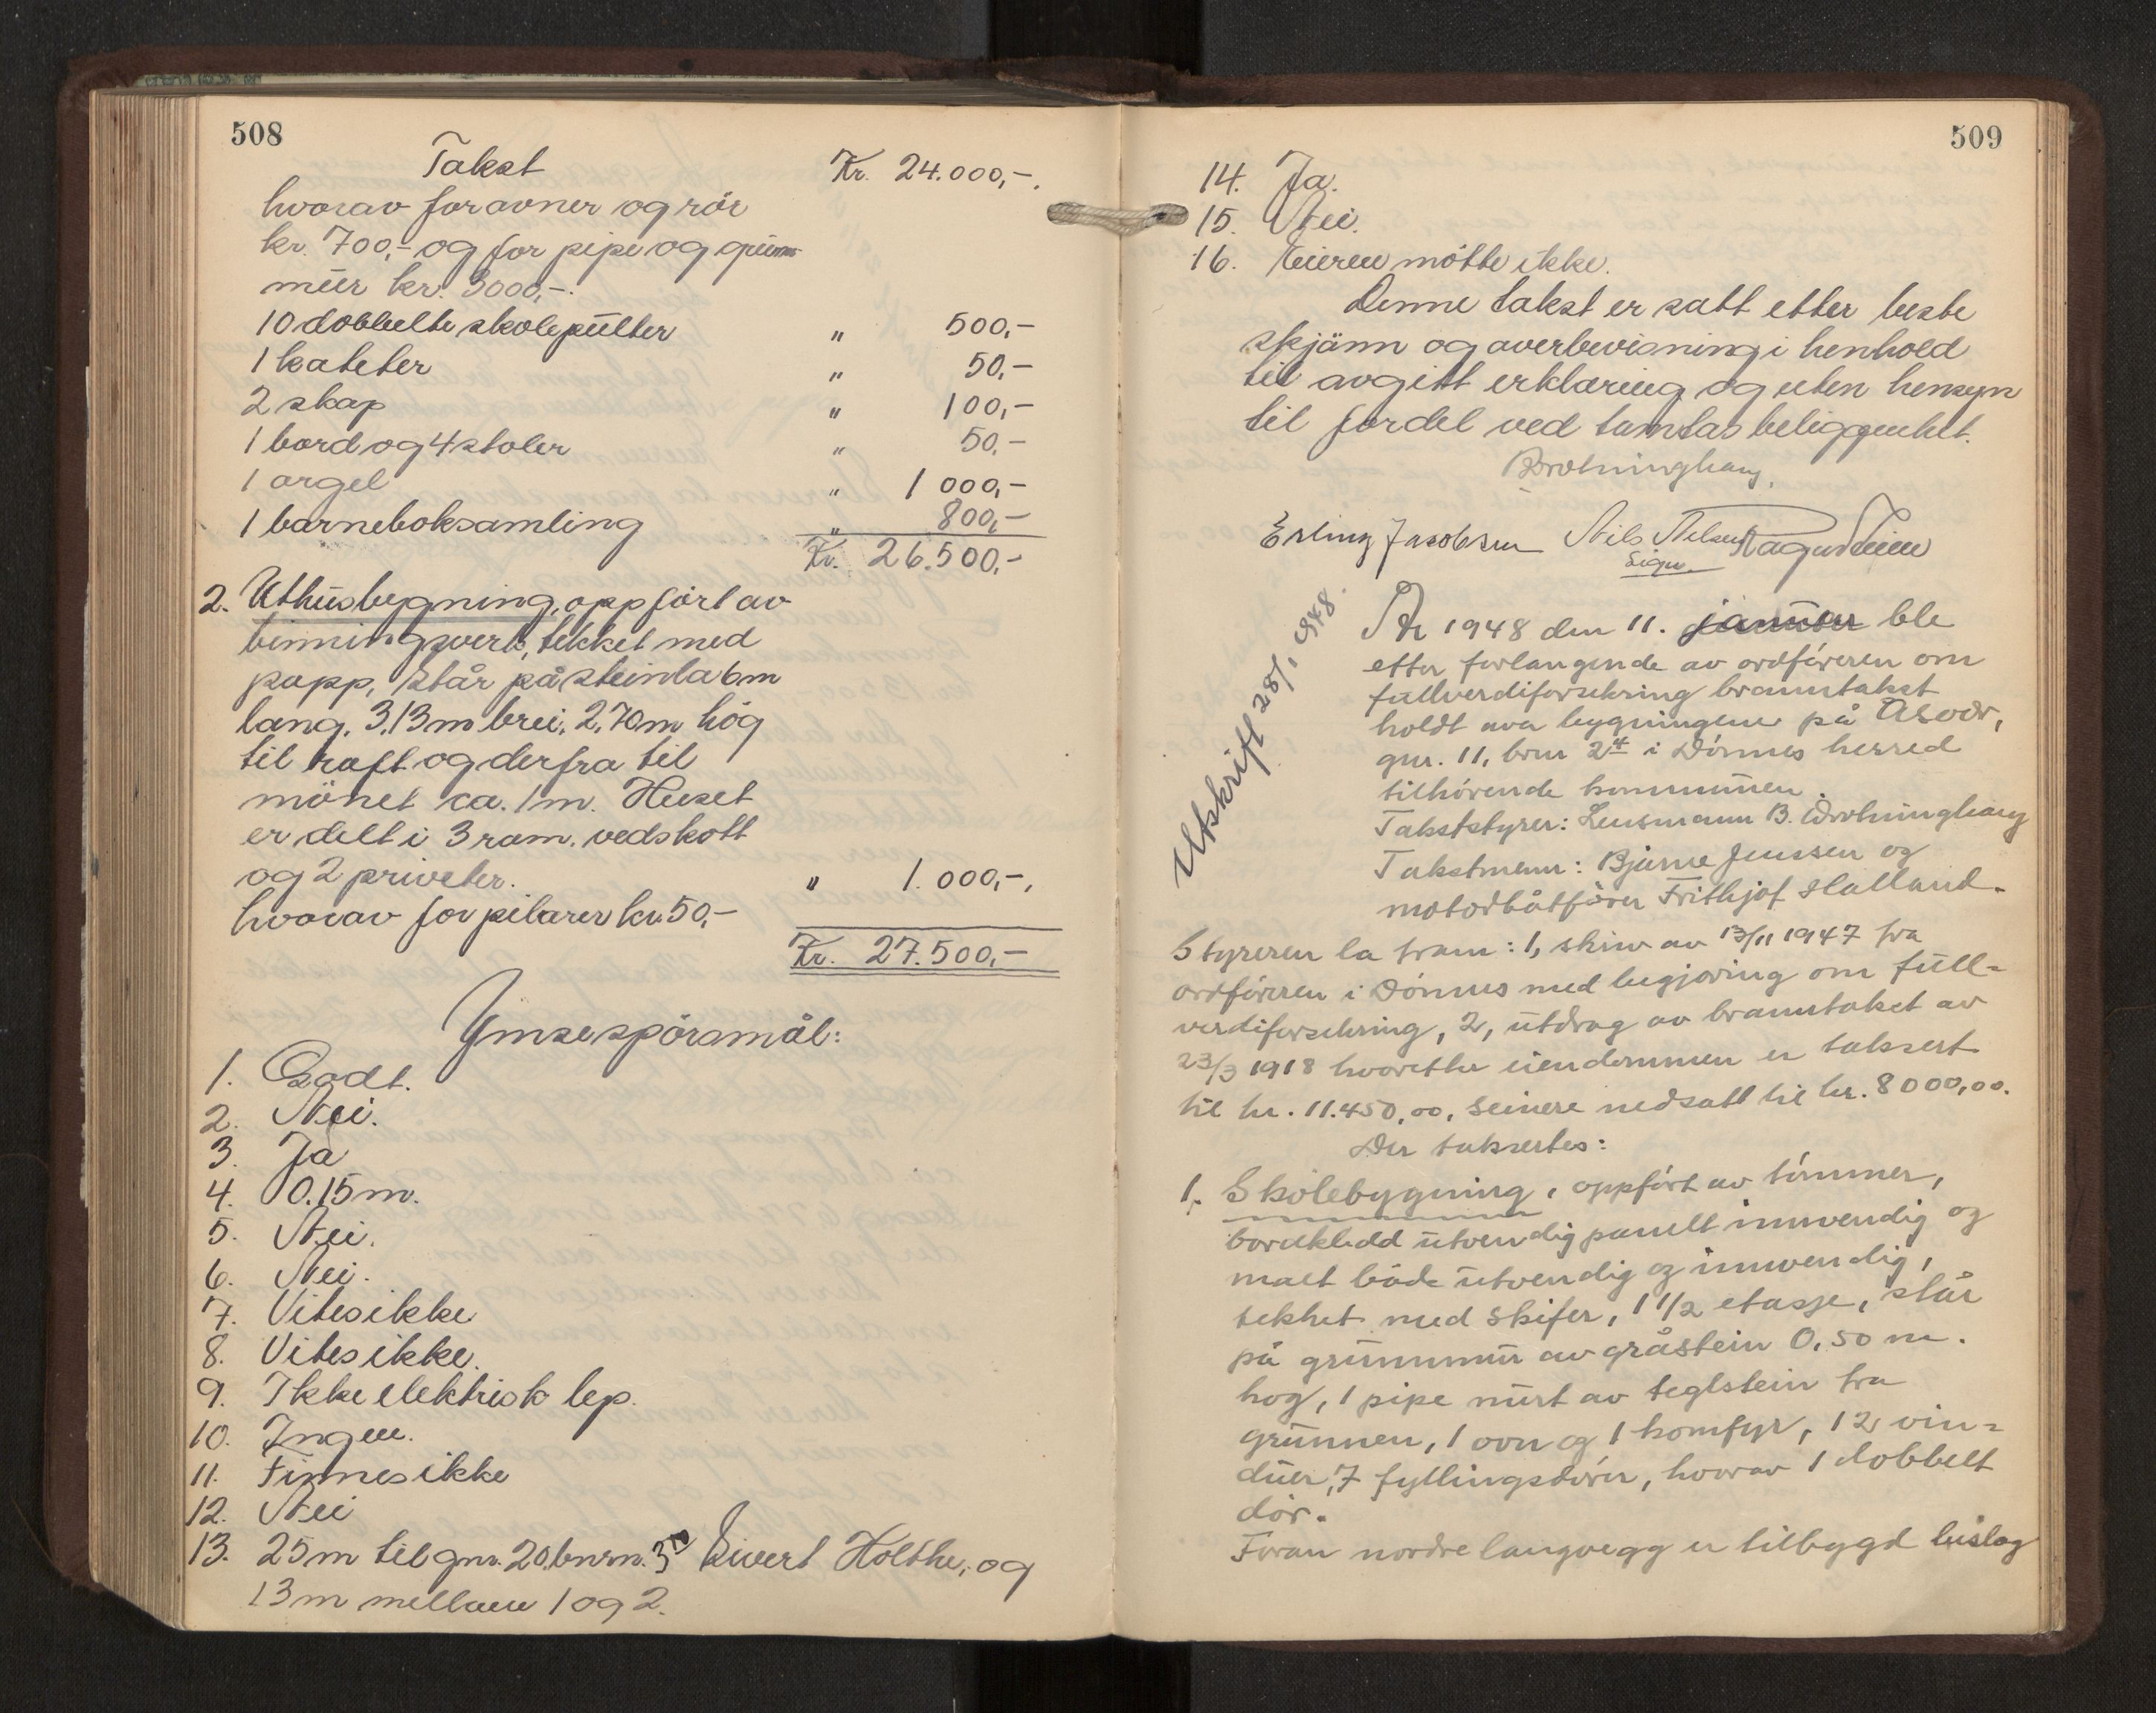 508
Takst Kr. 24.000,-.
hvorav for ovner og rör
kr. 700,- og for pipe og grunn
mur kr. 3000,-.
10 dobbelte skolepulter " 500,-
1 kateter " 50,-
2 skap " 100,-
1 bord og 4 stoler " 50,-
1 orgel " 1 000,-
1 barneboksamling " 800,-
Kr. 26.500,-
2. Uthusbygning, oppfört av
binningsverk, tekket med
papp, står på steinla 6 m
lang, 3,13 m brei, 2,70 m hög
til raft og derfra til
mönet ca. 1 m. Huset
er delt i 3 rom. vedskott
og 2 priveter. " 1.000,-,
hvorav for pilarer kr. 50,-
Kr. 27.500,-
Ymse spörsmål:
1. Godt.
2. Nei.
3. Ja
4. 0.15 m.
5. Nei.
6. Nei.
7. Vites ikke
8. Vites ikke.
9. Ikke elektrisk lys.
10. Ingen.
11. Finnes ikke
12. Nei
13. 25 m til gnr. 20, bnrn. 3 Sivert Holthe, og
13 m mellom 1 og 2.
509
14. Ja.
15. Nei.
16. Eieren mötte ikke.
Denne takst er satt etter beste
skjönn og overbevisning i henhold
til avgitt erklæring og uten hensyn
til fordel ved tomtas beliggenhet.
Drotninghaug.
Erling Jacobsen Nils Nilsen Ragnar
Sign.
Utskrift 28/1 1948.
År 1948 den 11. januar ble
etter forlangende av ordföreren om
fullverdiforsekring branntakst
holdt over bygningene på Åsvær,
gnr. 11, brnr 24 i Dönnes herred
tilhörende kommunen.
Takststyrer: Lensmann B. Drotninghaug
Takstmenn: Bjarne Jenssen og
motorbåtförer Frithjof Halland.
Styreren la fram: 1, skriv av 13/11 1947 fra
ordföreren i Dönnes med begjæring om full-
verdiforsekring, 2, utdrag av branntakst av
23/3 1918 hvoretter eiendommen er taksert
til kr. 11.450,00, seinere nedsatt til kr. 8000,00.
Der taksertes:
1. Skolebygning, oppfört av tömmer,
bordkledd utvendig panelt innvendig og
malt både utvendig og innvendig,
tekket med skifer, 1 1/2 etasje, står
på grunnmur av gråstein 0,50 m.
hög, 1 pipe murt av teglstein fra
grunnen, 1 ovn og 1 komfyr, 12 vin-
duer, 7 fyllingsdörer, hvorav 1 dobbelt
dör.
Foran nordre langvegg er tilbygd bislag